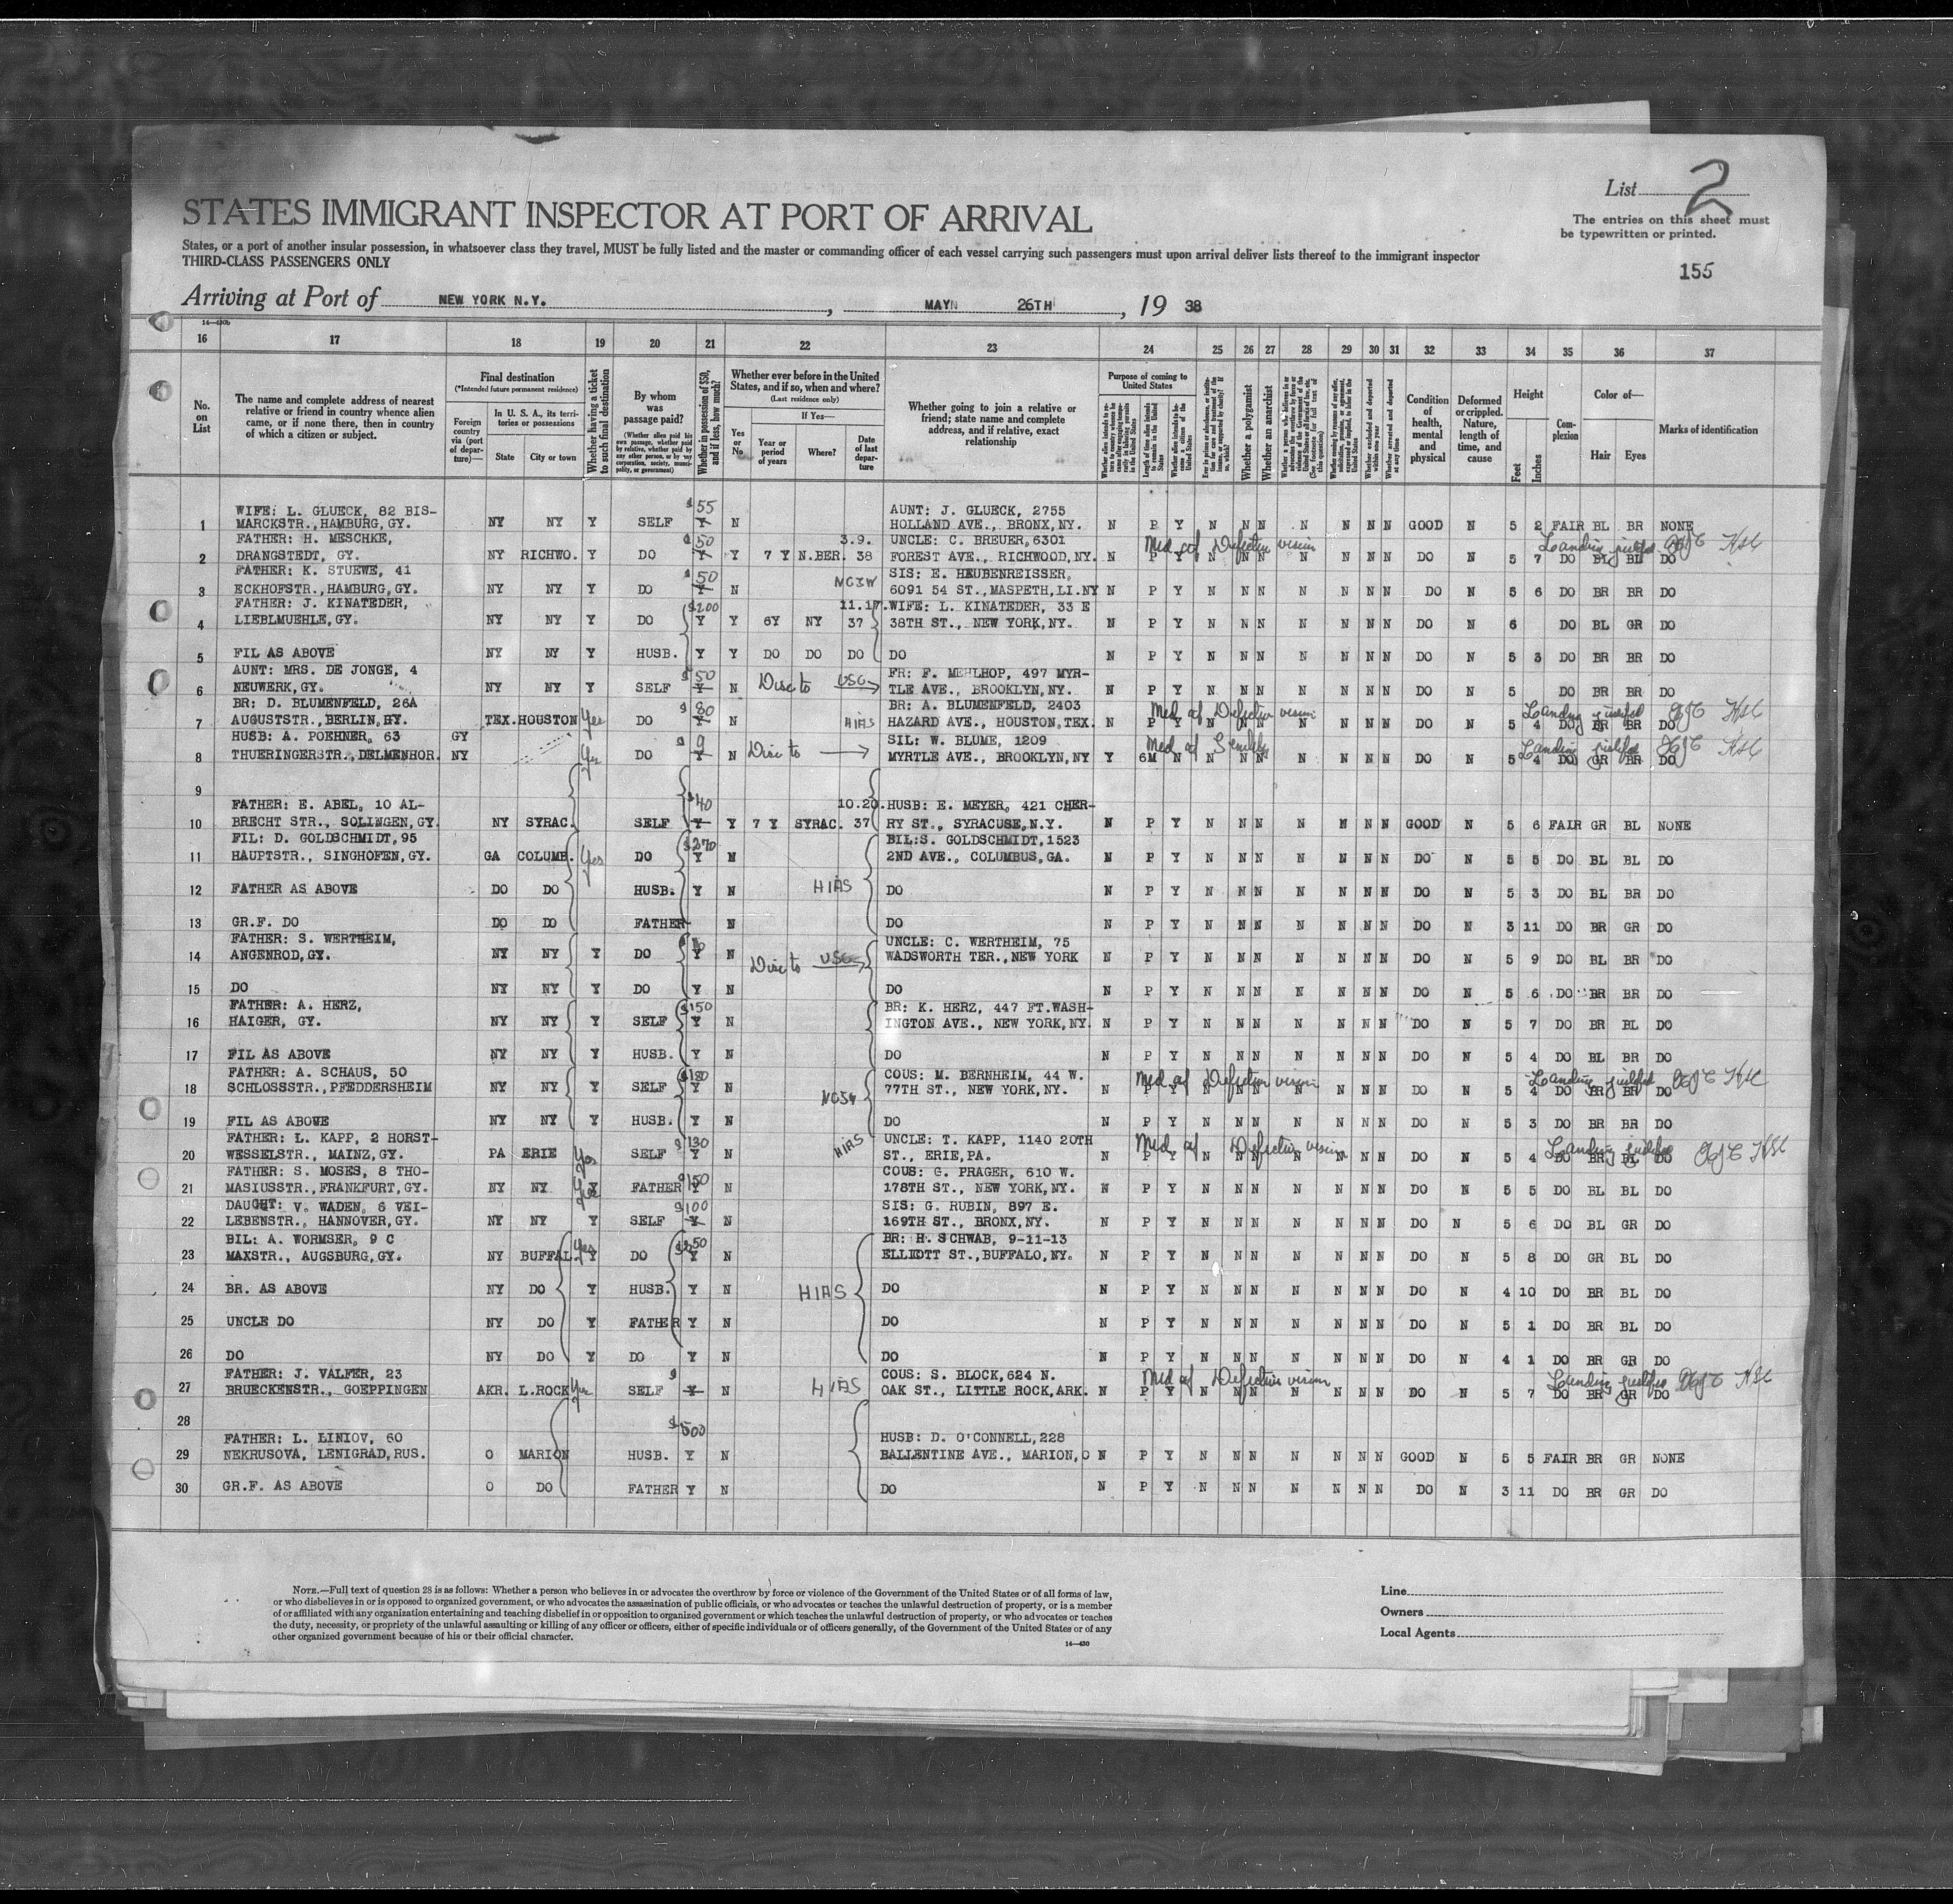 List 2
STATES IMMIGRANT INSPECTOR AT PORT OF ARRIVAL
The entries on this sheet must
be typewritten or printed.
States, or a port of another insular possession, in whatsoever class they travel, MUST be fully listed and the master or commanding officer of each vessel carrying such passengers must upon arrival deliver lists thereof to the immigrant inspector
THIRD-CLASS PASSENGERS ONLY
155
Arriving at Port of NEW YORK N.Y., MAY 26TH, 19 38
16 17 18 19 20 21 22 23 24 25 26 27 28 29 30 31 32 33 34 35 36 37
No. on List
The name and complete address of nearest relative or friend in country whence alien came, or if none there, then in country of which a citizen or subject.
Final destination
(*Intended future permanent residence)
Foreign country via (port of departure)—
In U. S. A., its territories or possessions
State
City or town
Whether having a ticket to such final destination
By whom was passage paid?
(Whether alien paid his own passage, whether paid by relative, whether paid by any other person, or by any corporation, society, municipality, or government)
Whether in possession of $50, and if less, how much?
Whether ever before in the United States, and if so, when and where?
(Last residence only)
Yes or No
If Yes—
Year or period of years
Where?
Date of last departure
Whether going to join a relative or friend; state name and complete address, and if relative, exact relationship
Purpose of coming to United States
Whether a polygamist
Whether an anarchist
Condition of health, mental and physical
Deformed or crippled. Nature, length of time, and cause
Height
Feet
Inches
Complexion
Color of—
Hair
Eyes
Marks of identification
WIFE: L. GLUECK, 82 BIS- $55 AUNT: J. GLUECK, 2755
1 MARCKSTR., HAMBURG, GY. NY NY Y SELF Y N HOLLAND AVE., BRONX, NY. N P Y N N N N N N N GOOD N 5 2 FAIR BL BR NONE
FATHER: H. MESCHKE, 50 3.9. UNCLE: C. BREUER, 6301 Med cof Defective vision Landing justified
2 DRANGSTEDT, GY. NY RICHWO. Y DO Y Y 7 Y N.BER. 38 FOREST AVE., RICHWOOD, NY. N P Y N N N N N N N DO N 5 7 DO BL BL DO
FATHER: K. STUEWE, 41 $50 SIS: E. HEUBENREISSER,
3 ECKHOFSTR., HAMBURG, GY. NY NY Y DO Y N 6091 54 ST., MASPETH, LI.NY N P Y N N N N N N N DO N 5 6 DO BR BR DO
FATHER: J. KINATEDER, $200 11.17. WIFE: L. KINATEDER, 33 E
4 LIEBLMUEHLE, GY. NY NY Y DO Y Y 6Y NY 37 38TH ST., NEW YORK, NY. N P Y N N N N N N N DO N 6 DO BL GR DO
5 FIL AS ABOVE NY NY Y HUSB. Y Y DO DO DO DO N P Y N N N N N N N DO N 5 3 DO BR BR DO
AUNT: MRS. DE JONGE, 4 $50 FR: F. MEHLHOP, 497 MYR-
6 NEUWERK, GY. NY NY Y SELF Y N Disc to USC TLE AVE., BROOKLYN, NY. N P Y N N N N N N N DO N 5 DO BR BR DO
BR: D. BLUMENFELD, 26A $80 BR: A. BLUMENFELD, 2403 Med cof Defective vision Landing justified
7 AUGUSTSTR., BERLIN, GY. TEX. HOUSTON Yes DO Y N HIAS HAZARD AVE., HOUSTON, TEX. N P Y N N N N N N N DO N 5 4 DO BR BR DO
HUSB: A. POEHNER, 63 GY $9 SIL: W. BLUME, 1209 Med cof Senility Landing justified
8 THUERINGERSTR., DELMENHOR. NY Yes DO Y N Disc to MYRTLE AVE., BROOKLYN, NY Y 6M N N N N N N N N DO N 5 4 DO GR BR DO
9
FATHER: E. ABEL, 10 AL- $40 10.20. HUSB: E. MEYER, 421 CHER-
10 BRECHT STR., SOLINGEN, GY. NY SYRAC. SELF Y Y 7 Y SYRAC. 37 RY ST., SYRACUSE, N.Y. N P Y N N N N N N N GOOD N 5 6 FAIR GR BL NONE
FIL: D. GOLDSCHMIDT, 95 $270 BIL: S. GOLDSCHMIDT, 1523
11 HAUPTSTR., SINGHOFEN, GY. GA COLUMB. Yes DO Y N 2ND AVE., COLUMBUS, GA. N P Y N N N N N N N DO N 5 5 DO BL BL DO
12 FATHER AS ABOVE DO DO HUSB. Y N HIAS DO N P Y N N N N N N N DO N 5 3 DO BL BR DO
13 GR.F. DO DO DO FATHER N DO N P Y N N N N N N N DO N 3 11 DO BR GR DO
FATHER: S. WERTHEIM, UNCLE: C. WERTHEIM, 75
14 ANGENROD, GY. NY NY Y DO Y N Disc to USC WADSWORTH TER., NEW YORK N P Y N N N N N N N DO N 5 9 DO BL BR DO
15 DO NY NY Y DO Y N DO N P Y N N N N N N N DO N 5 6 DO BR BR DO
FATHER: A. HERZ, $150 BR: K. HERZ, 447 FT. WASH-
16 HAIGER, GY. NY NY Y SELF Y N INGTON AVE., NEW YORK, NY. N P Y N N N N N N N DO N 5 7 DO BR BL DO
17 FIL AS ABOVE NY NY Y HUSB. Y N DO N P Y N N N N N N N DO N 5 4 DO BL BR DO
FATHER: A. SCHAUS, 50 $180 COUS: M. BERNHEIM, 44 W. Med cof Defective vision Landing justified
18 SCHLOSSSTR., PFEDDERSHEIM NY NY Y SELF Y N 77TH ST., NEW YORK, NY. N P Y N N N N N N N DO N 5 4 DO BR BR DO
19 FIL AS ABOVE NY NY Y HUSB. Y N DO N P Y N N N N N N N DO N 5 3 DO BR BR DO
FATHER: L. KAPP, 2 HORST- $130 HIAS UNCLE: T. KAPP, 1140 20TH Med cof Defective vision Landing justified
20 WESSELSTR., MAINZ, GY. PA ERIE Yes SELF Y N ST., ERIE, PA. N P Y N N N N N N N DO N 5 4 DO BR BL DO
FATHER: S. MOSES, 8 THO- $150 COUS: G. PRAGER, 610 W.
21 MASIUSSTR., FRANKFURT, GY. NY NY Yes FATHER Y N 178TH ST., NEW YORK, NY. N P Y N N N N N N N DO N 5 5 DO BL BL DO
DAUGHT: V. WADEN, 6 VEI- $100 SIS: G. RUBIN, 897 E.
22 LEBENSTR., HANNOVER, GY. NY NY Y SELF Y N 169TH ST., BRONX, NY. N P Y N N N N N N N DO N 5 6 DO BL GR DO
BIL: A. WORMSER, 9 C BR: H. SCHWAB, 9-11-13
23 MAXSTR., AUGSBURG, GY. NY BUFFAL. Yes Y DO Y N ELLIOTT ST., BUFFALO, NY. N P Y N N N N N N N DO N 5 8 DO GR BL DO
24 BR. AS ABOVE NY DO Y HUSB. Y N HIAS DO N P Y N N N N N N N DO N 4 10 DO BR BL DO
25 UNCLE DO NY DO Y FATHER Y N DO N P Y N N N N N N N DO N 5 1 DO BR BL DO
26 DO NY DO Y DO Y N DO N P Y N N N N N N N DO N 4 1 DO BR GR DO
FATHER: J. VALFER, 23 $ COUS: S. BLOCK, 624 N. Med cof Defective vision Landing justified
27 BRUECKENSTR., GOEPPINGEN AKR. L.ROCK Yes SELF Y N HIAS OAK ST., LITTLE ROCK, ARK. N P Y N N N N N N N DO N 5 7 DO BR GR DO
28 $500
FATHER: L. LINIOV, 60 HUSB: D. O'CONNELL, 228
29 NEKRUSOVA, LENIGRAD, RUS. O MARION HUSB. Y N BALLENTINE AVE., MARION, O N P Y N N N N N N N GOOD N 5 5 FAIR BR GR NONE
30 GR.F. AS ABOVE O DO FATHER Y N DO N P Y N N N N N N N DO N 3 11 DO BR GR DO
NOTE.—Full text of question 28 is as follows: Whether a person who believes in or advocates the overthrow by force or violence of the Government of the United States or of all forms of law,
or who disbelieves in or is opposed to organized government, or who advocates the assassination of public officials, or who advocates or teaches the unlawful destruction of property, or is a member
of or affiliated with any organization entertaining and teaching disbelief in or opposition to organized government or which teaches the unlawful destruction of property, or who advocates or teaches
the duty, necessity, or propriety of the unlawful assaulting or killing of any officer or officers, either of specific individuals or of officers generally, of the Government of the United States or of any
other organized government because of his or their official character.
14—430
Line
Owners
Local Agents